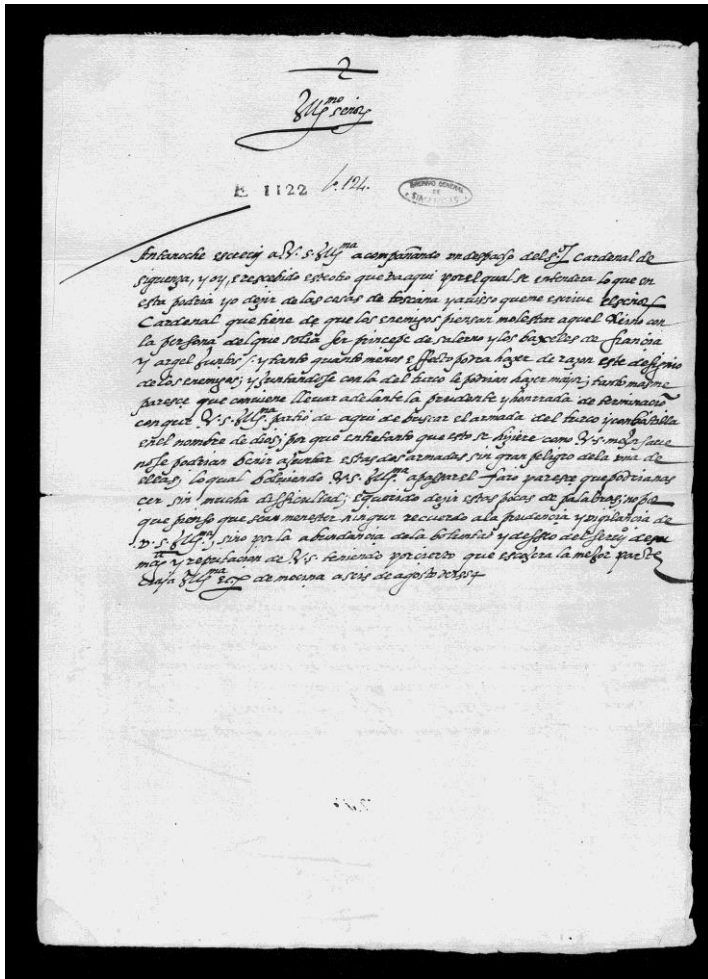 2
Yll^mo señor
E 1122 fo. 124.
ARCHIVO GENERAL DE SIMANCAS
Antanoche escreuj a V. S. Yll^ma acompañando vn despacho del S^or Cardenal de
siguensa, y oy, e rescebido estotro que va aqui por el qual se entendera lo que en
esta podria yo dezir de las cosas de toscana y auisso que me escriue el señor
Cardenal que tiene de que los enemigos piensan molestar aquel Reino con
la persona del que solia ser principe de salerno y los baxeles de francia
y argel juntos / y tanto quanto menos effecto podra hazer de razon este designio
de los enemigos; y juntandose con la del turco le podrian hazer major; tanto mas me
paresce que conuiene lleuar adelante la prudente y honrrada determinacio^n
con que V. S. Yll^ma partio de aqui de buscar el armada del turco y conbatilla
en el nombre de dios; por que entretanto que esto se hiziere como V. S. mejor saue
no se podrian benir a juntar estas dos armadas sin gran peligro de la vna de
ellas; lo qual bolviendo V. S. Yll^ma a passar el faro paresce que podrian ha
cer sin mucha difficultad; e querido dezir estas pocas de palabras; no por
que pienso que sean menester ningun recuerdo a la prudencia y vigilancia de
V. S. Yll^ma; sino por la abundancia de la boluntad y desseo del serui^o de su
ma^t y reputacion de V. S. teniendo por cierto que escojera la mejor parte
cuja Yll^ma &c de mecina a seis de agosto de 1554